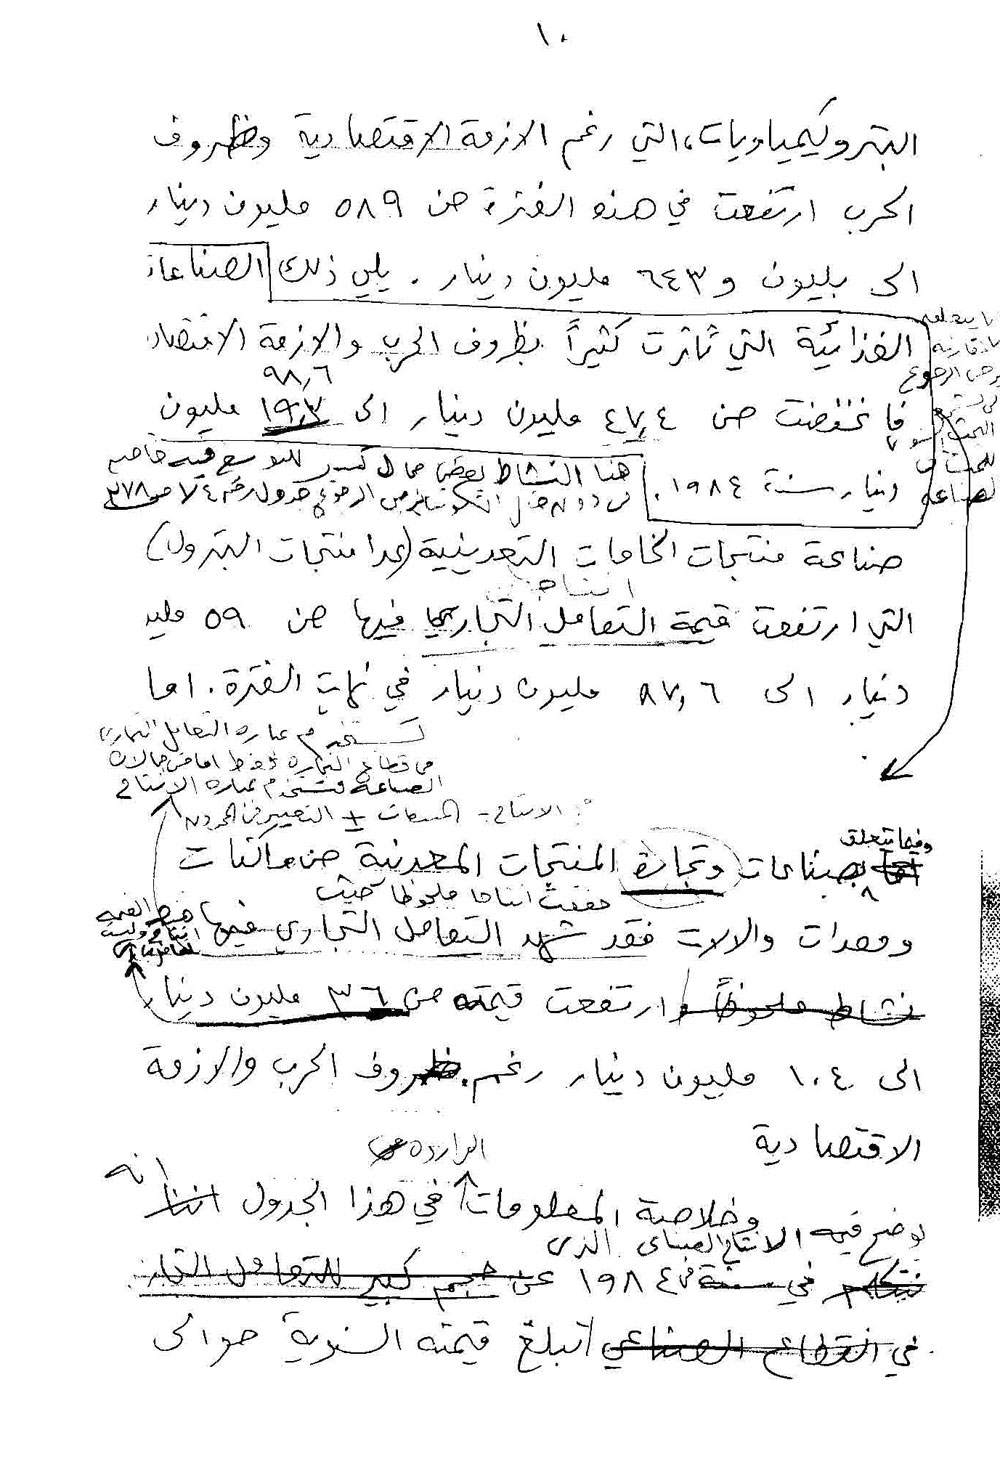 ١٠
البتروكيمياويات، التي رغم الازمة الاقتصادية وظروف
الحرب ارتفعت في هذه الفترة من ٥٨٩ مليون دينار
الى بليون و ٦٤٣ مليون دينار . يلي ذلك الصناعات
الغذائية التي تأثرت كثيراً بظروف الحرب والازمة الاقتصاد
٩٨,٦
فانخفضت من ٤٧,٤ مليون دينار الى ١٩,٣ مليون
هذا النشاط يعطي مجال كبير للتوسع فيه خاصة
دينار سنة ١٩٨٤ .
صناعة منتجات الخامات التعدينية (عدا منتجات البترول)
انتاج
التي ارتفعت قيمة التعامل التجاري فيها من ٥٩ مليو
دينار الى ٨٧,٦ مليون دينار في نهاية الفترة . اما
تستخدم عبارة التعامل التجاري
في قطاع التجارة فقط اما في مجالات
الصناعة فتستخدم عبارة الانتاج
وفيما يتعلق
بصناعات وتجارة المنتجات المعدنية من ماكنات
حققت انتاجا ملحوظا حيث
ومعدات والالات فقد شهد التعامل التجاري فيها
نشاط ملحوظاً وارتفعت قيمته من ٣٦ مليون دينار
الى ١٠٤ مليون دينار رغم ظروف الحرب والازمة
الاقتصادية
الواردة
وخلاصة المعلومات في هذا الجدول اننا انه
توضح قيمة الانتاج الصناعي الذي
نتكلم في سنة ١٩٨٤ عن حجم كبير للتعامل التجار
في القطاع الصناعي تبلغ قيمته السنوية حوالى